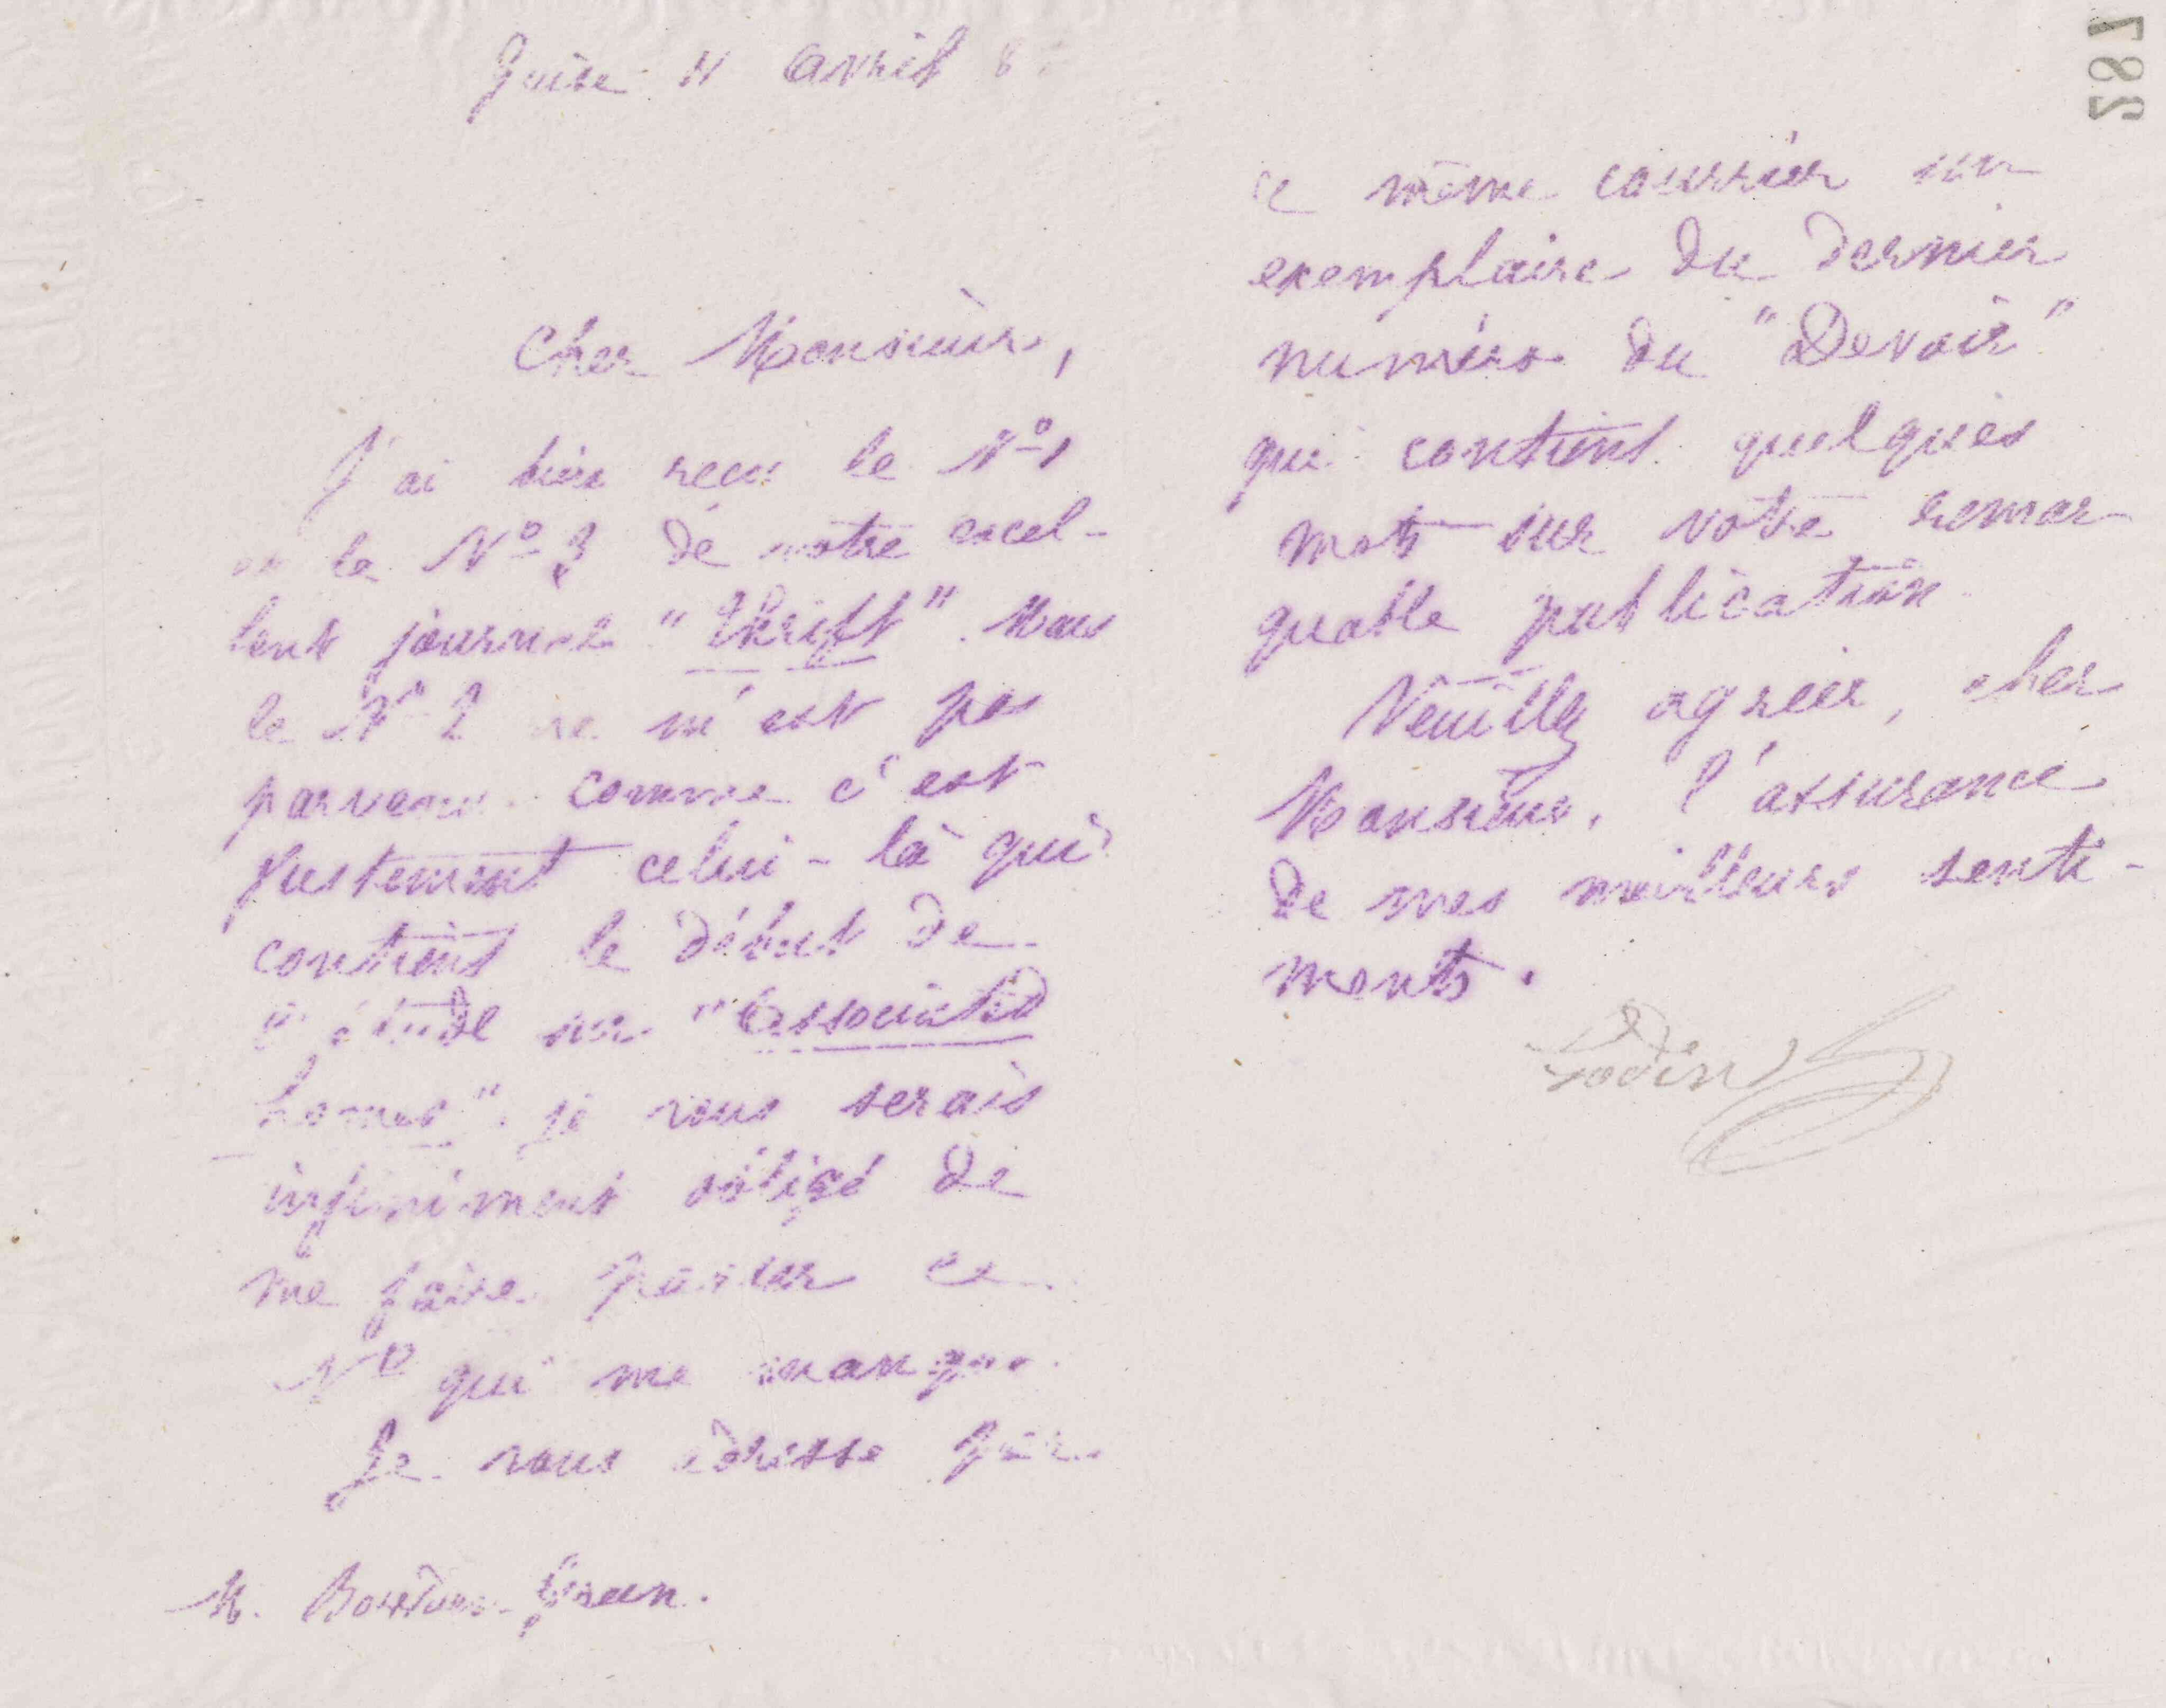 Guise 11 avril 8
Cher Monsieur,
J'ai bien reçu le Nº 1
le Nº 3 de votre excel-
lent journal "Thrift". Mais
le Nº 2 ne m'est pas
parvenu. Comme c'est
justement celui-là qui
contient le début de
l'étude sur "Associated
homes". je vous serais
infiniment obligé de
me faire passer ce
Nº qui me manque.
Je vous adresse par
M. Green.
ce même courrier un
exemplaire du dernier
numéro du "Devoir"
qui contient quelques
mots sur votre remar-
quable publication.
Veuillez agréer, cher
Monsieur, l'assurance
de mes meilleurs senti-
ments.
Godin
287